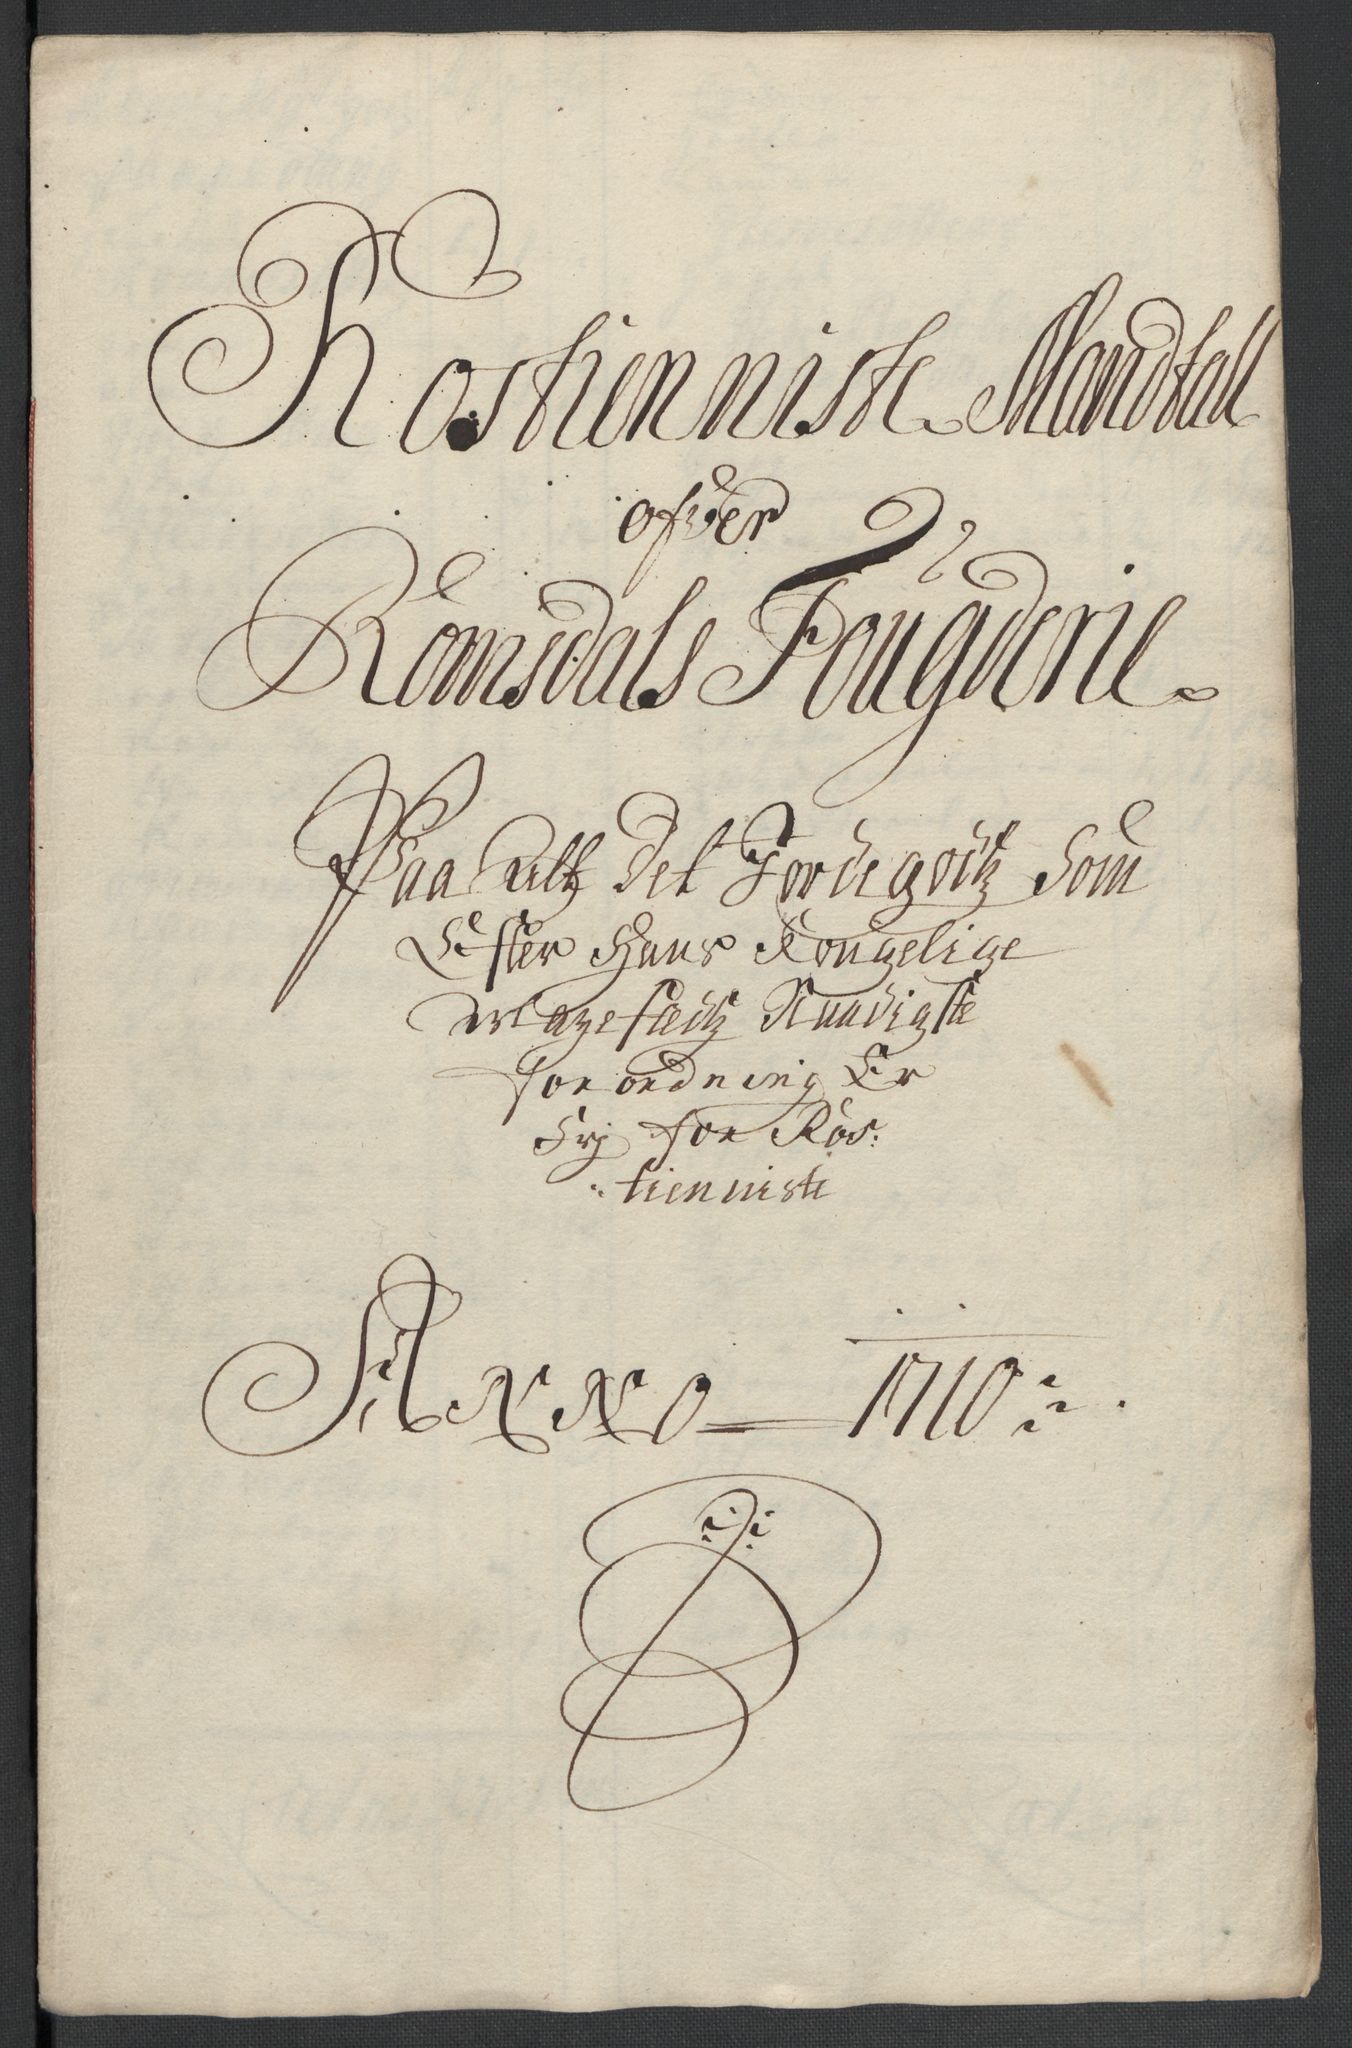 Rostienniste Mandtall
ofver
Romsdals Fougderie
Paa Alt det Jordegodtz Som
Efter Hans Kongelige
Mayestætz Naadigste
forordning Er
Frj for Ros:
:tienniste
Anno 1710